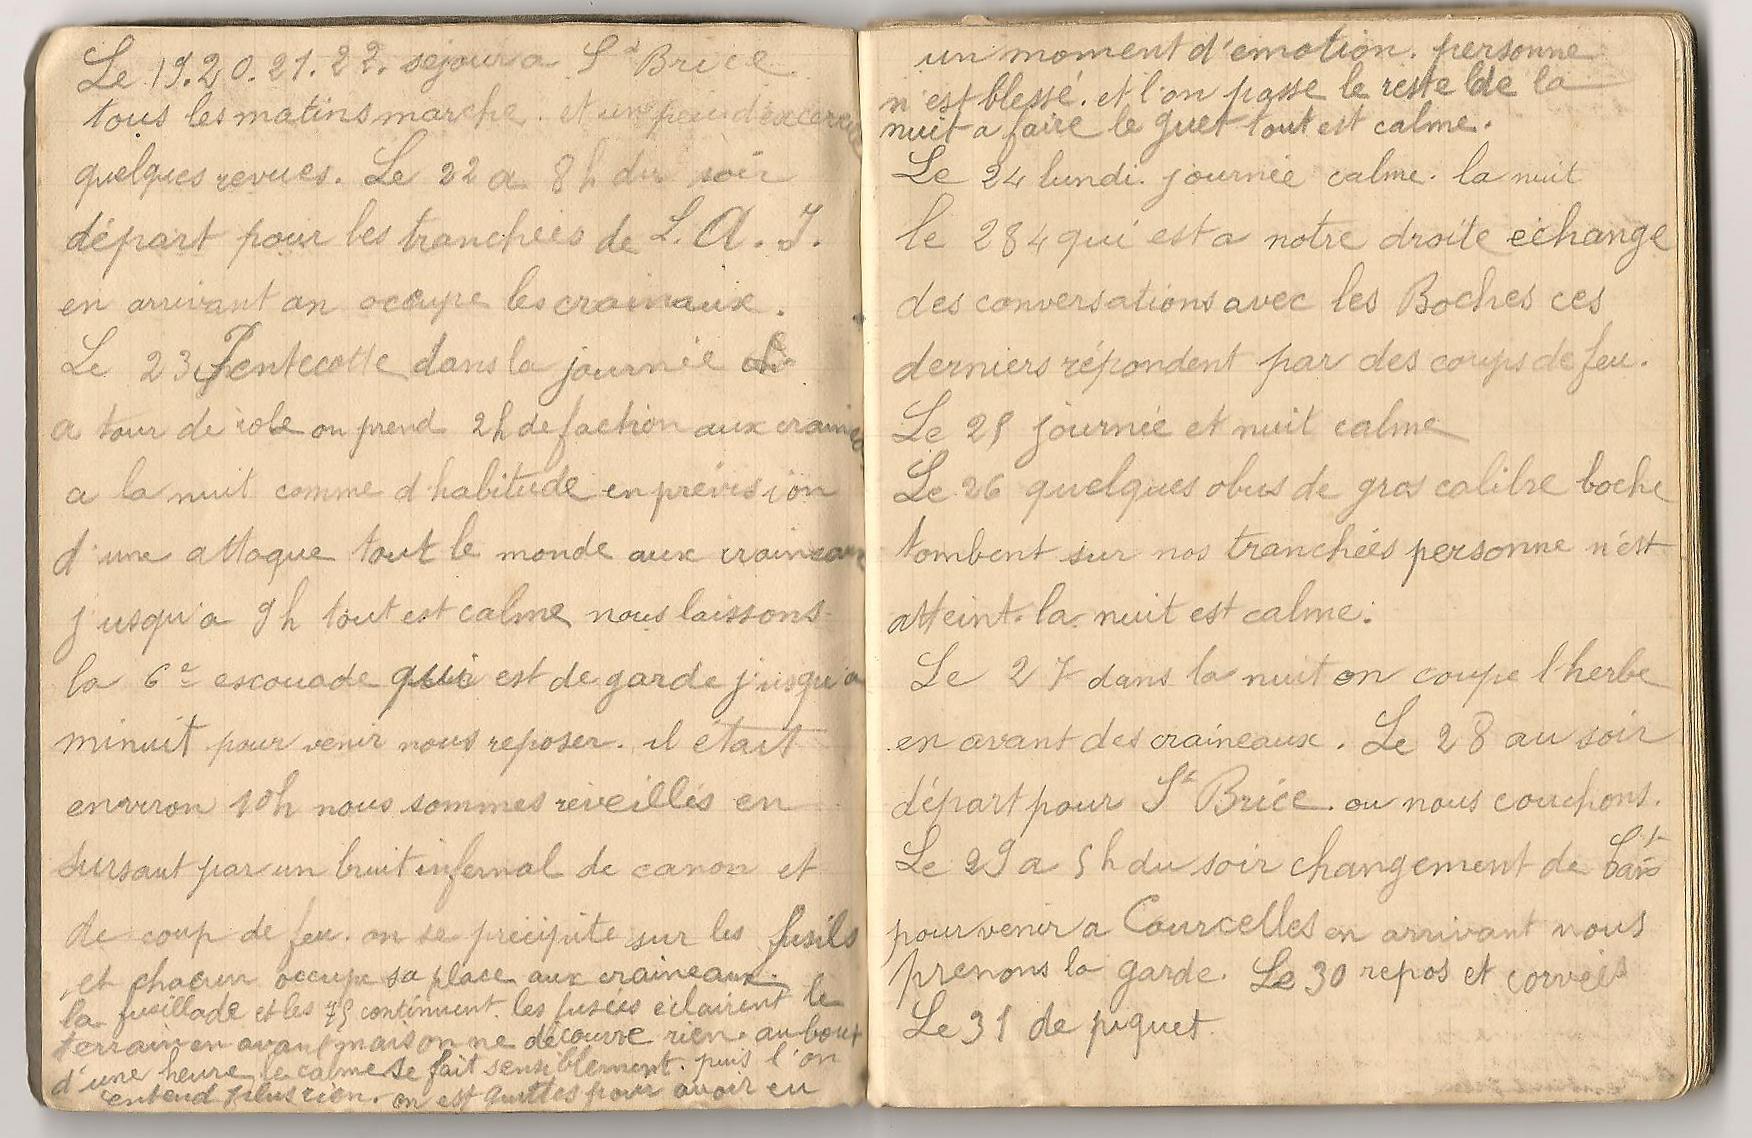 Le 19.20.21.22. sejour a St Brice
tous les matins marche. et un peu d'exercice
quelques revues. Le 22 a 8h du soir
départ pour les tranchées de L. A. J.
en arrivant on occupe les crainaux.
Le 23 Pentecotte dans la journée
a tour de role on prend 2h de faction aux craineaux
a la nuit comme d'habitude en prévision
d'une attaque tout le monde aux craineaux
jusqu'a 9h tout est calme nous laissons
la 6e escouade qui est de garde jusqu'a
minuit pour venir nous reposer. il était
environ 10h nous sommes réveillés en
sursaut par un bruit infernal de canon et
de coup de feu. on se précipite sur les fusils
et chacun occupe sa place aux craineaux.
la fusillade et les 75 continuent. les fusées éclairent le
terrain en avant mais on ne découvre rien. au bout
d'une heure le calme se fait sensiblement. puis l'on
entend plus rien. on est quittes pour avoir eu
un moment d'emotion. personne
n'est blessé. et l'on passe le reste de la
nuit a faire le guet tout est calme.
Le 24 lundi. journée calme. la nuit
le 284 qui est a notre droite echange
des conversations avec les Boches ces
derniers répondent par des coups de feu.
Le 25 journée et nuit calme
Le 26 quelques obus de gros calibre boche
tombent sur nos tranchées personne n'est
atteint. la nuit est calme.
Le 27 dans la nuit on coupe l'herbe
en avant des craineaux. Le 28 au soir
départ pour St Brice. ou nous couchons.
Le 29 a 5h du soir changement de
pour venir a Courcelles en arrivant nous
prenons la garde. Le 30 repos et corvées
Le 31 de piquet.